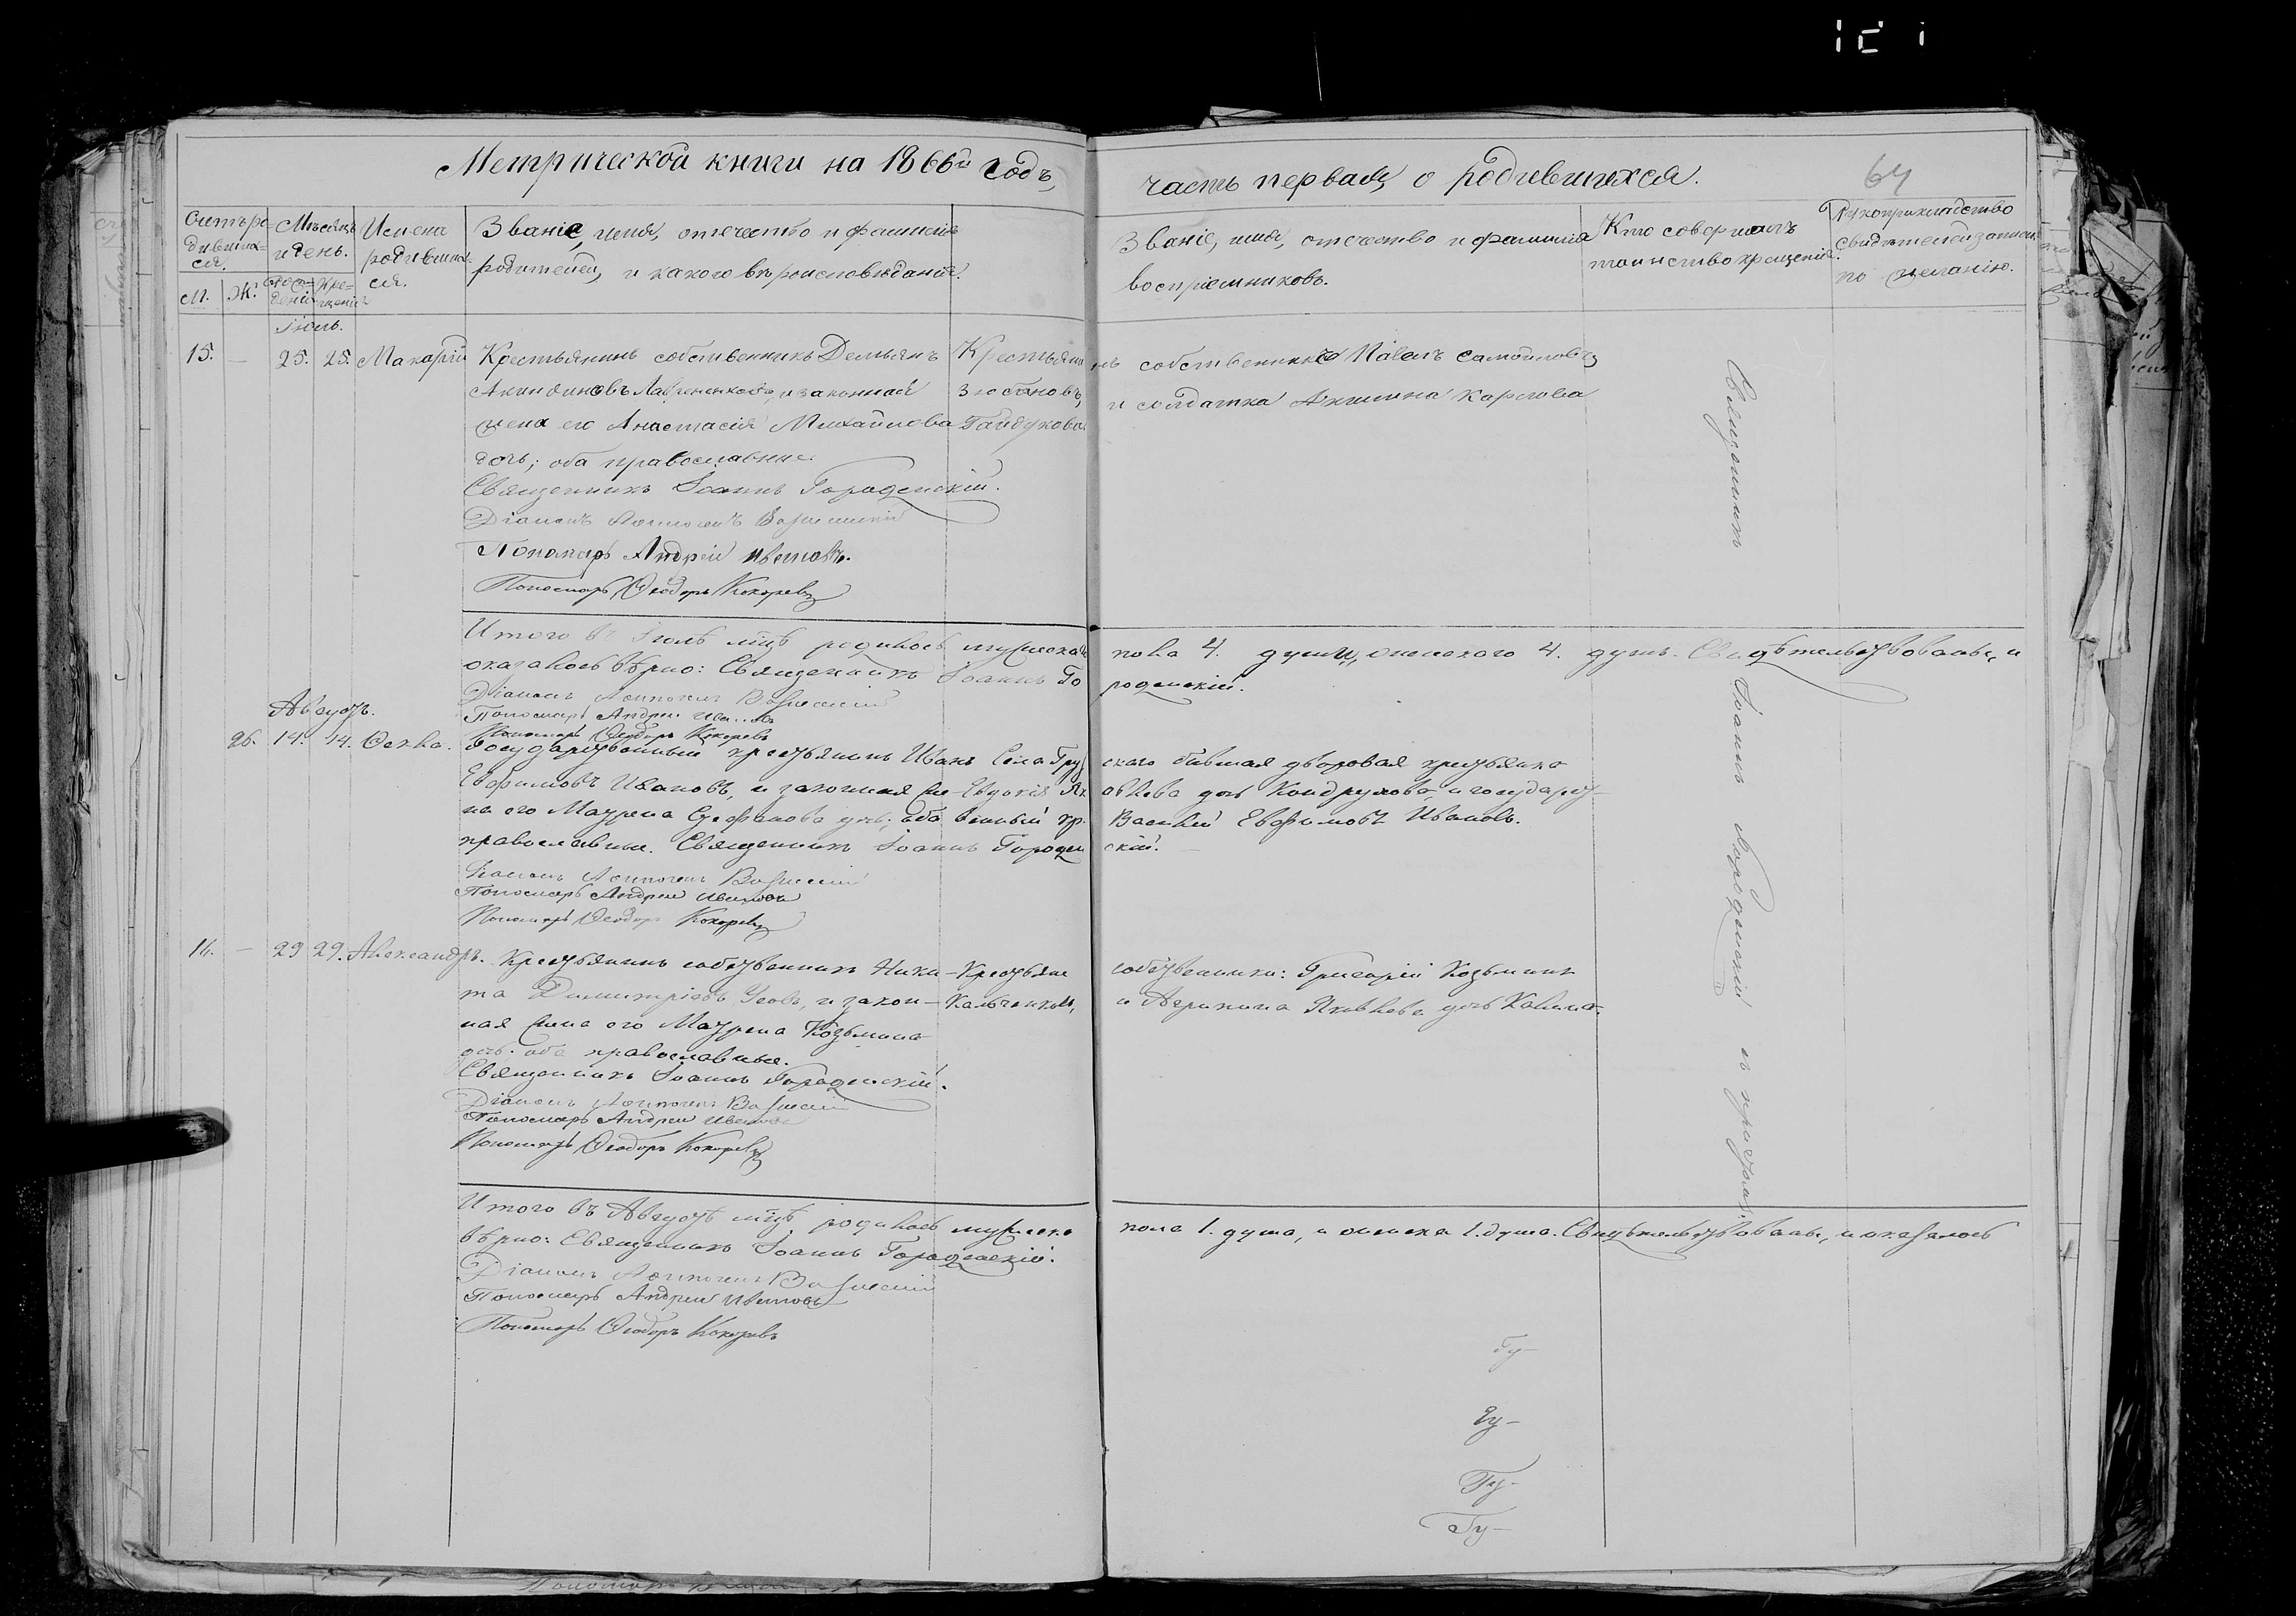 Метрической книги на 1866й годъ,
часть первая, о родившихся.
64
Счетъ ро-
дившихся.
М. Ж.
Мѣсяцъ
и день.
рож-
денія
кре-
щенія
Имена
родивших-
ся.
Званіе, имя, отечество и фамилія
родителей, и какого вѣроисповѣданія.
Званіе, имя, отечество и фамилія
воспріемниковъ.
Кто совершалъ
таинство крещенія.
Рукоприкладство
свидѣтелей записи
по желанію.
Іюль.
15. — 25. 25. Макарій
Крестьянинъ собственникъ Демьянъ
Акиндиновъ и законная
жена его Анастасія Михайлова
дочь; оба православные.
Священникъ Іоаннъ Городенскій.
Діаконъ
Пономарь Андрей Ивановъ.
Пономарь Ѳеодоръ Кокоревъ
Крестьянинъ собственникъ Павелъ Самойловъ
и солдатка Акилина Карпова
Гайдукова
Итого въ Іюлѣ мцѣ родилось мужеска пола 4. души, женскаго 4. души. Свидѣтельствовалъ, и
оказалось вѣрно: Священникъ Іоаннъ Городенскій.
Діаконъ
Пономарь Андрей Ивановъ
Пономарь Ѳеодоръ Кокоревъ
Августъ.
26. 14. 14. Ѳекла.
Государственный крестьянинъ Иванъ
Евфимовъ Ивановъ, и законная же-
на его Мавра Стефанова дочь; оба
православные. Священникъ Іоаннъ Городенскій.
Діаконъ
Пономарь Андрей Ивановъ
Пономарь Ѳеодоръ Кокоревъ
Села Грузскаго бывшая дворовая крестьянка
Евдокія Яковлева дочь Кондрукова, и государст-
венный кр. Василій Евфимовъ Ивановъ.
16. — 29 29. Александръ.
Крестьянинъ собственникъ Ники-
та Димитріевъ Усовъ, и закон-
ная жена его Мавра Козьмина
дочь; оба православные.
Священникъ Іоаннъ Городенскій.
Діаконъ
Пономарь Андрей Ивановъ
Пономарь Ѳеодоръ Кокоревъ
Крестьяне собственники: Григорій Козьминъ
и Агрипина Яковлева дочь
Священникъ Іоаннъ Городенскій съ причтомъ.
Итого въ Августѣ мцѣ родилось мужеска пола 1. душа, и женска 1. душа. Свидѣтельствовалъ, и оказалось
вѣрно: Священникъ Іоаннъ Городенскій.
Діаконъ
Пономарь Андрей Ивановъ
Пономарь Ѳеодоръ Кокоревъ